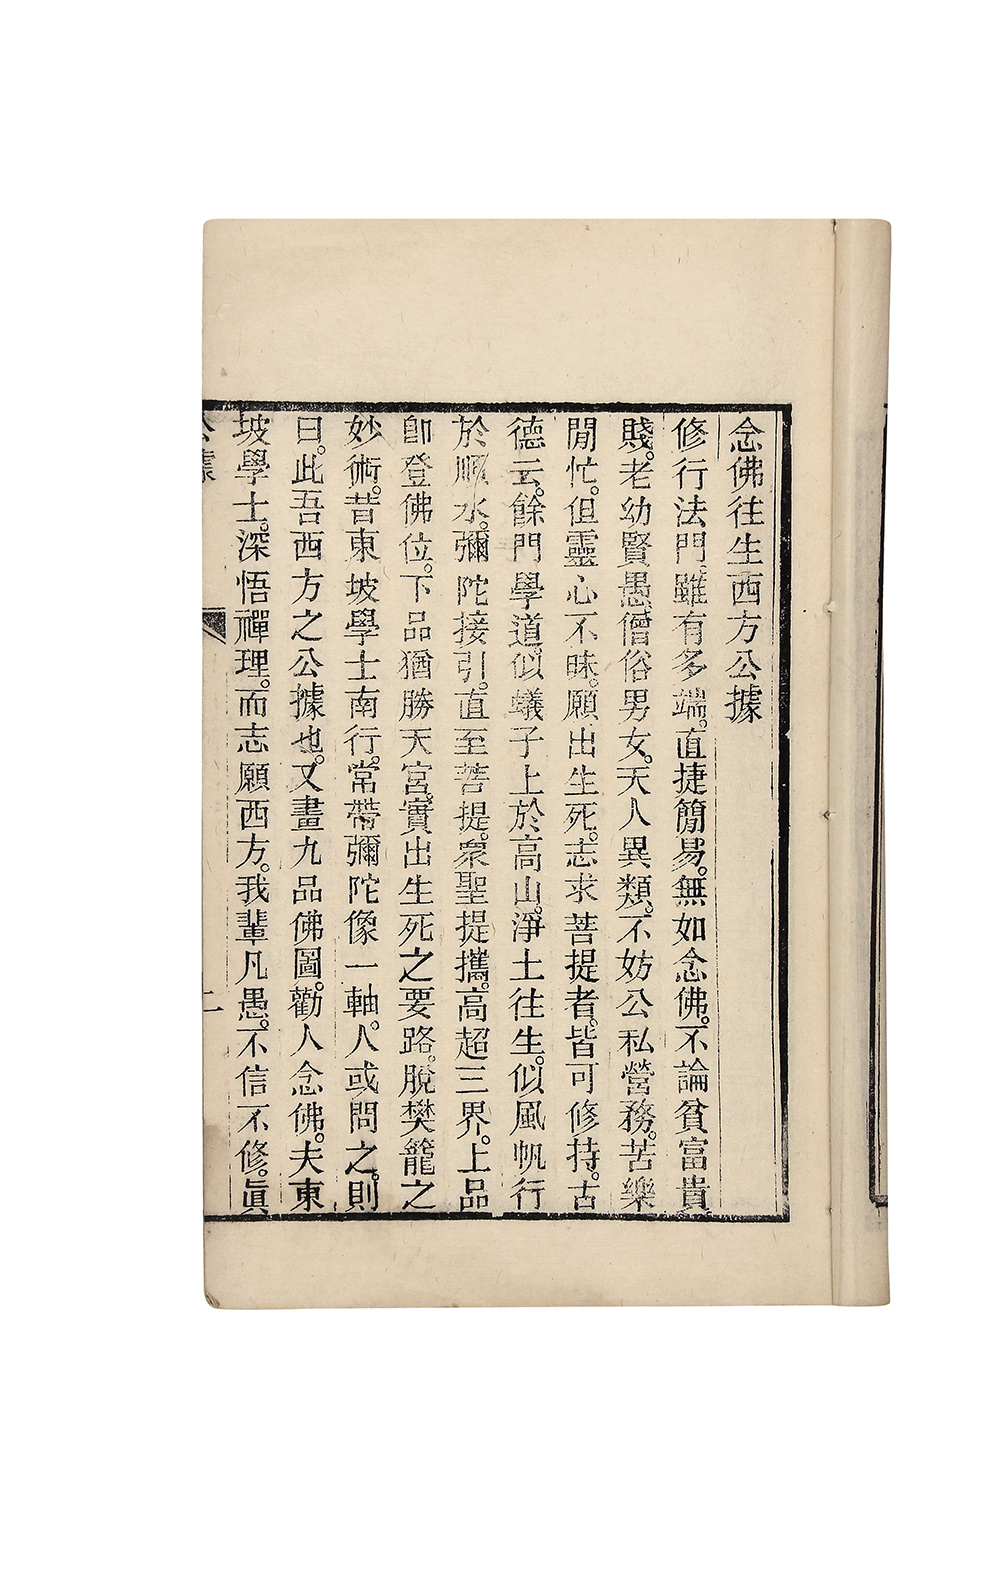 念佛往生西方公據
修行法門。雖有多端。直捷簡易。無如念佛。不論貧富貴
賤。老幼賢愚僧俗男女。天人異類。不妨公私營務。苦樂
閒忙。但靈心不昧。願出生死。志求菩提者。皆可修持。古
德云。餘門學道。似蟻子上於高山。淨土往生。似風帆行
於順水。彌陀接引。直至菩提。眾聖提攜。高超三界。上品
卽登佛位。下品猶勝天宮。實出生死之要路。脫樊籠之
妙術。昔東坡學士南行。常帶彌陀像一軸。人或問之。則
曰。此吾西方之公據也。又畫九品佛圖。勸人念佛。夫東
坡學士。深悟禪理。而志願西方。我輩凡愚。不信不修。眞
公據
二